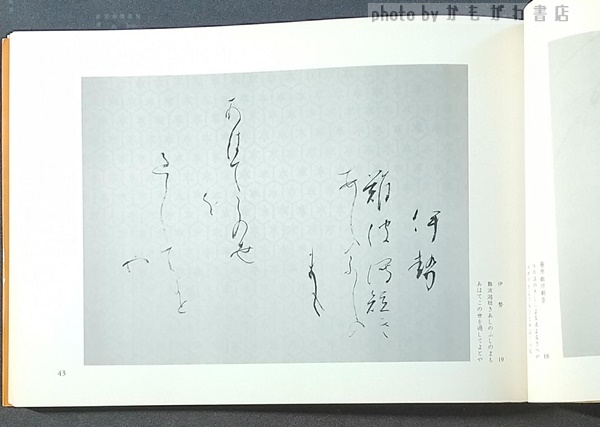 photo by かもがわ書店
伊勢
難波潟短き
あしのふしの
まも
あはてこの世
を
過してよ
とや
伊勢
難波潟短きあしのふしのまも
あはてこの世を過してよとや
19
18
43